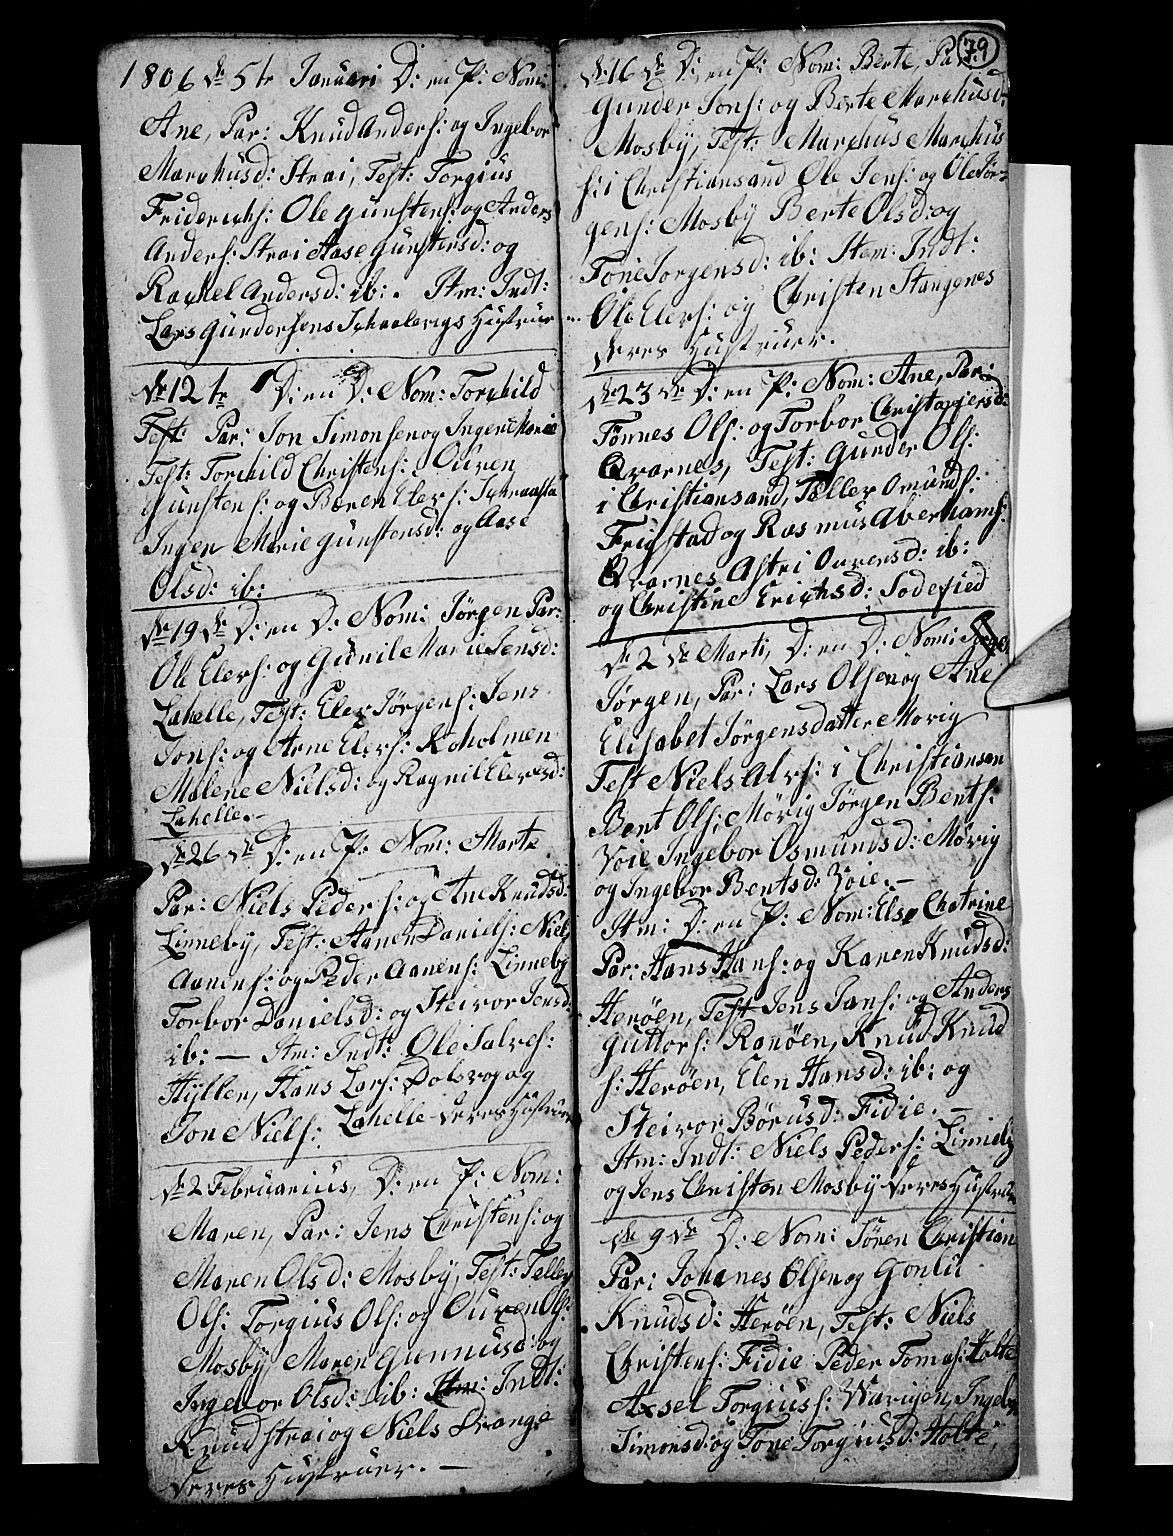 1806 d. 5te Januari D: en P: Nom:
Ane, Par: Knud Anders: og Ingebor
Marchusd: Strai, Test: Torgius
Friderichs: Ole Gunstens: og Anders
Anders: Strai Aase Gunstensd: og
Rachel Andersd: ib: . Itm: Indt:
Lars Gundersens Hustrue
d. 12te D: en D: Nom: Torchild
Test: Par: Jon Simonsen og Ingeri Marie
Test: Torchild Christens: Ouven
Gunstens: og Bæren Elevs:
Ingen Marie Gunstensd: og Aase
Olsd: ib:
d. 19de D: en D: Nom: Jørgen Par:
Ole Elevs: og Gunil Marie Jensd:
Lahelle, Test: Elev Jørgens: Jens
Jons: og Arne Elevs: Roholmen
Malene Nielsd: og Ragnil Elevsd:
Lahelle.-
d. 26de D: en P: Nom: Marte
Par: Niels Peders: og Ane Knudsd:
Linneby, Test: Aanen Daniels: Niels
Aanens: og Peder Aanens: Linneby
Torbor Danielsd: og Steivor Jensd:
ib: — Itm: Indt: Ole Salves:
Hyllen, Hans Lars: Dolsvog og
Jon Niels: Lahelle deres Hustruer
d. 2 Februarius, D: en P: Nom:
Maren, Par: Jens Christens: og
Maren Olsd: Mosby, Test: Tellev
Ols: Torgius Ols: og Ouven Ols:
Mosby Maren Gunnusd: og
Ingebor Olsd: ib: Itm: Indt:
Knud Strai og Niels Drange
deres Hustruer. —
79
d. 16de D: en P: Nom: Berte, Par:
Gunder Jons: og Berte Marchusd:
Mosby, Test: Marchus Marchus
s: i Christiansand Ole Jens: og Ole Jør-
gens: Mosby Berte Olsd: og
Tone Jorgensd: ib: Item: Indt:
Ole Elevs: og Christen Stangenes
deres Hustruer.
d. 23de D: en P: Nom: Ane, Par:
Tønnes Ols: og Torbor Christophersd:
Qvarnes, Test: Gunder Ols:
i Christiansand, Tellev Omunds:
Frigstad og Rasmus Aberhams:
Qvarnes Astri Ouvensd: ib:
og Christine Erichsd: Sodefied
d. 2de Marti, D: en D: Nom:
Jørgen, Par: Lars Olsen og Ane
Elisabet Jørgensdatter Morig
Test Niels Alvs: i Christiansan
Bent Ols: Mörig Jørgen Bents:
Voie Ingebor Osmundsd: Mörig
og Ingebor Bentsd: Voie.—
Itm: D: en P: Nom: Else Chatrine
Par: Hans Hans: og Karen Knudsd:
Herøen, Test Jens Jans: og Anders
Guttors: Ranøen, Knud Knud
s: Herøen, Elen Hansd: ib: og
Steivor Børusd: Fidie. —
Itm: Indt: Niels Peders: Linneby
og Jens Christen Mosby deres Hustruer
d. 9de D: Nom: Søren Christian
Par: Johanes Olsen og Gonlu
Knudsd: Herøen, Test: Niels
Christens: Fidie Peder Tomas: Holte
Axsel Torgiuss: Ingebor
Simonsd: og Tone Torgiusd: Holte,